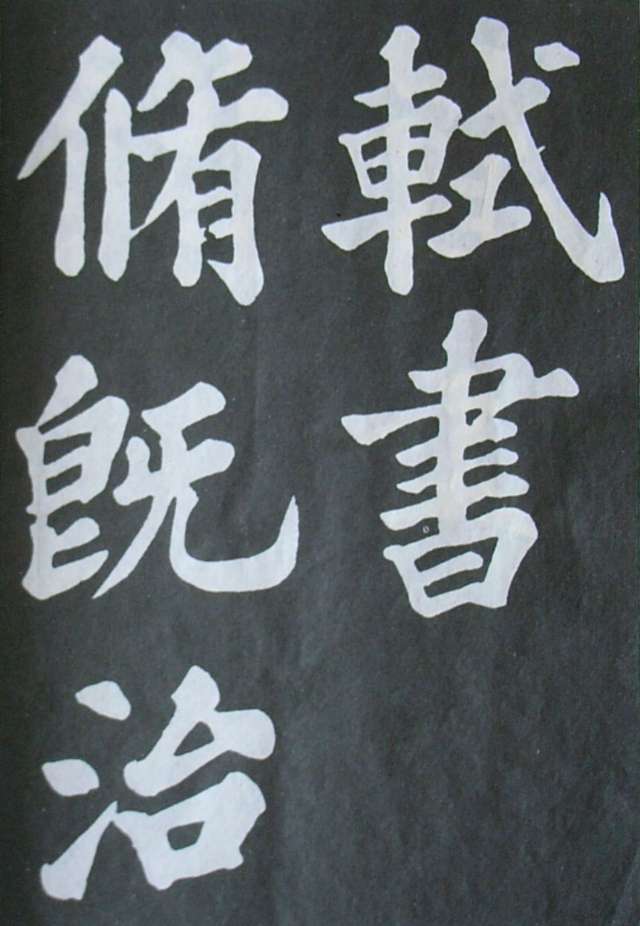 軾書
脩既治